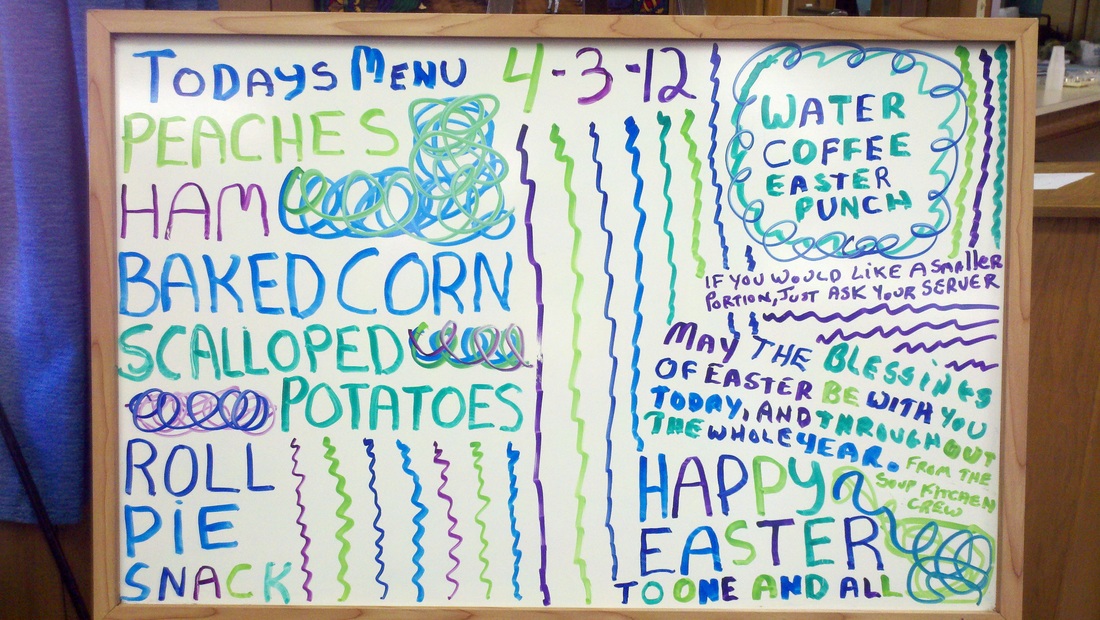 TODAYS MENU 4-3-12
PEACHES
HAM
BAKED CORN
SCALLOPED
POTATOES
ROLL
PiE
SNACK
WATER
COFFEE
EASTER
PUNCH
IF YOU WOULD LIKE A SMAller
PORTION, JUST ASK YOUR SERVER
MAY THE BLESSiNGS
OF EASTER BE WITH YOU
TODAY, AND THROUGHOUT
THE WHOLE YEAR.
FROM THE
SOUP KITCHEN
CREW
HAPPY
EASTER
TO ONE AND ALL